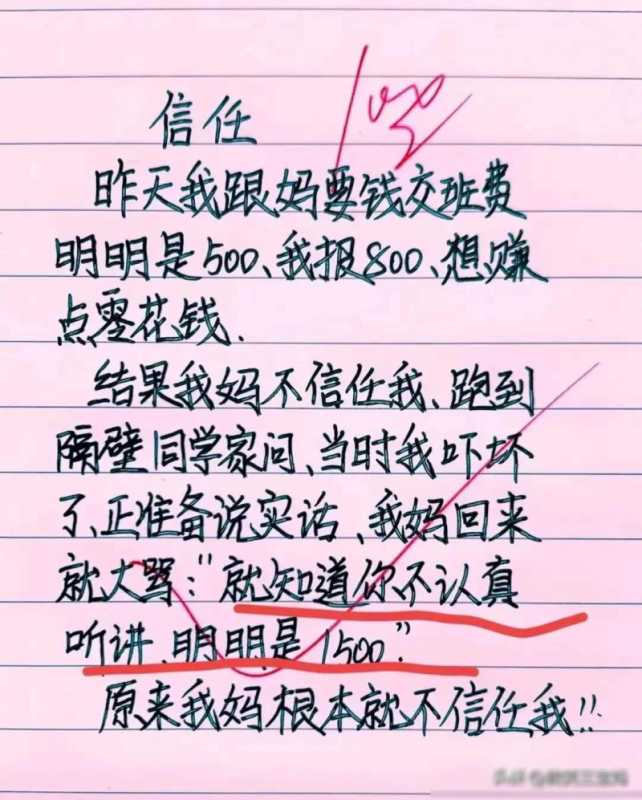 100
信任
昨天我跟妈要钱交班费
明明是500、我报800、想赚
点零花钱.
结果我妈不信任我、跑到
隔壁同学家问、当时我吓坏
了、正准备说实话、我妈回来
就大骂:"就知道你不认真
听讲、明明是1500"
原来我妈根本就不信任我!!